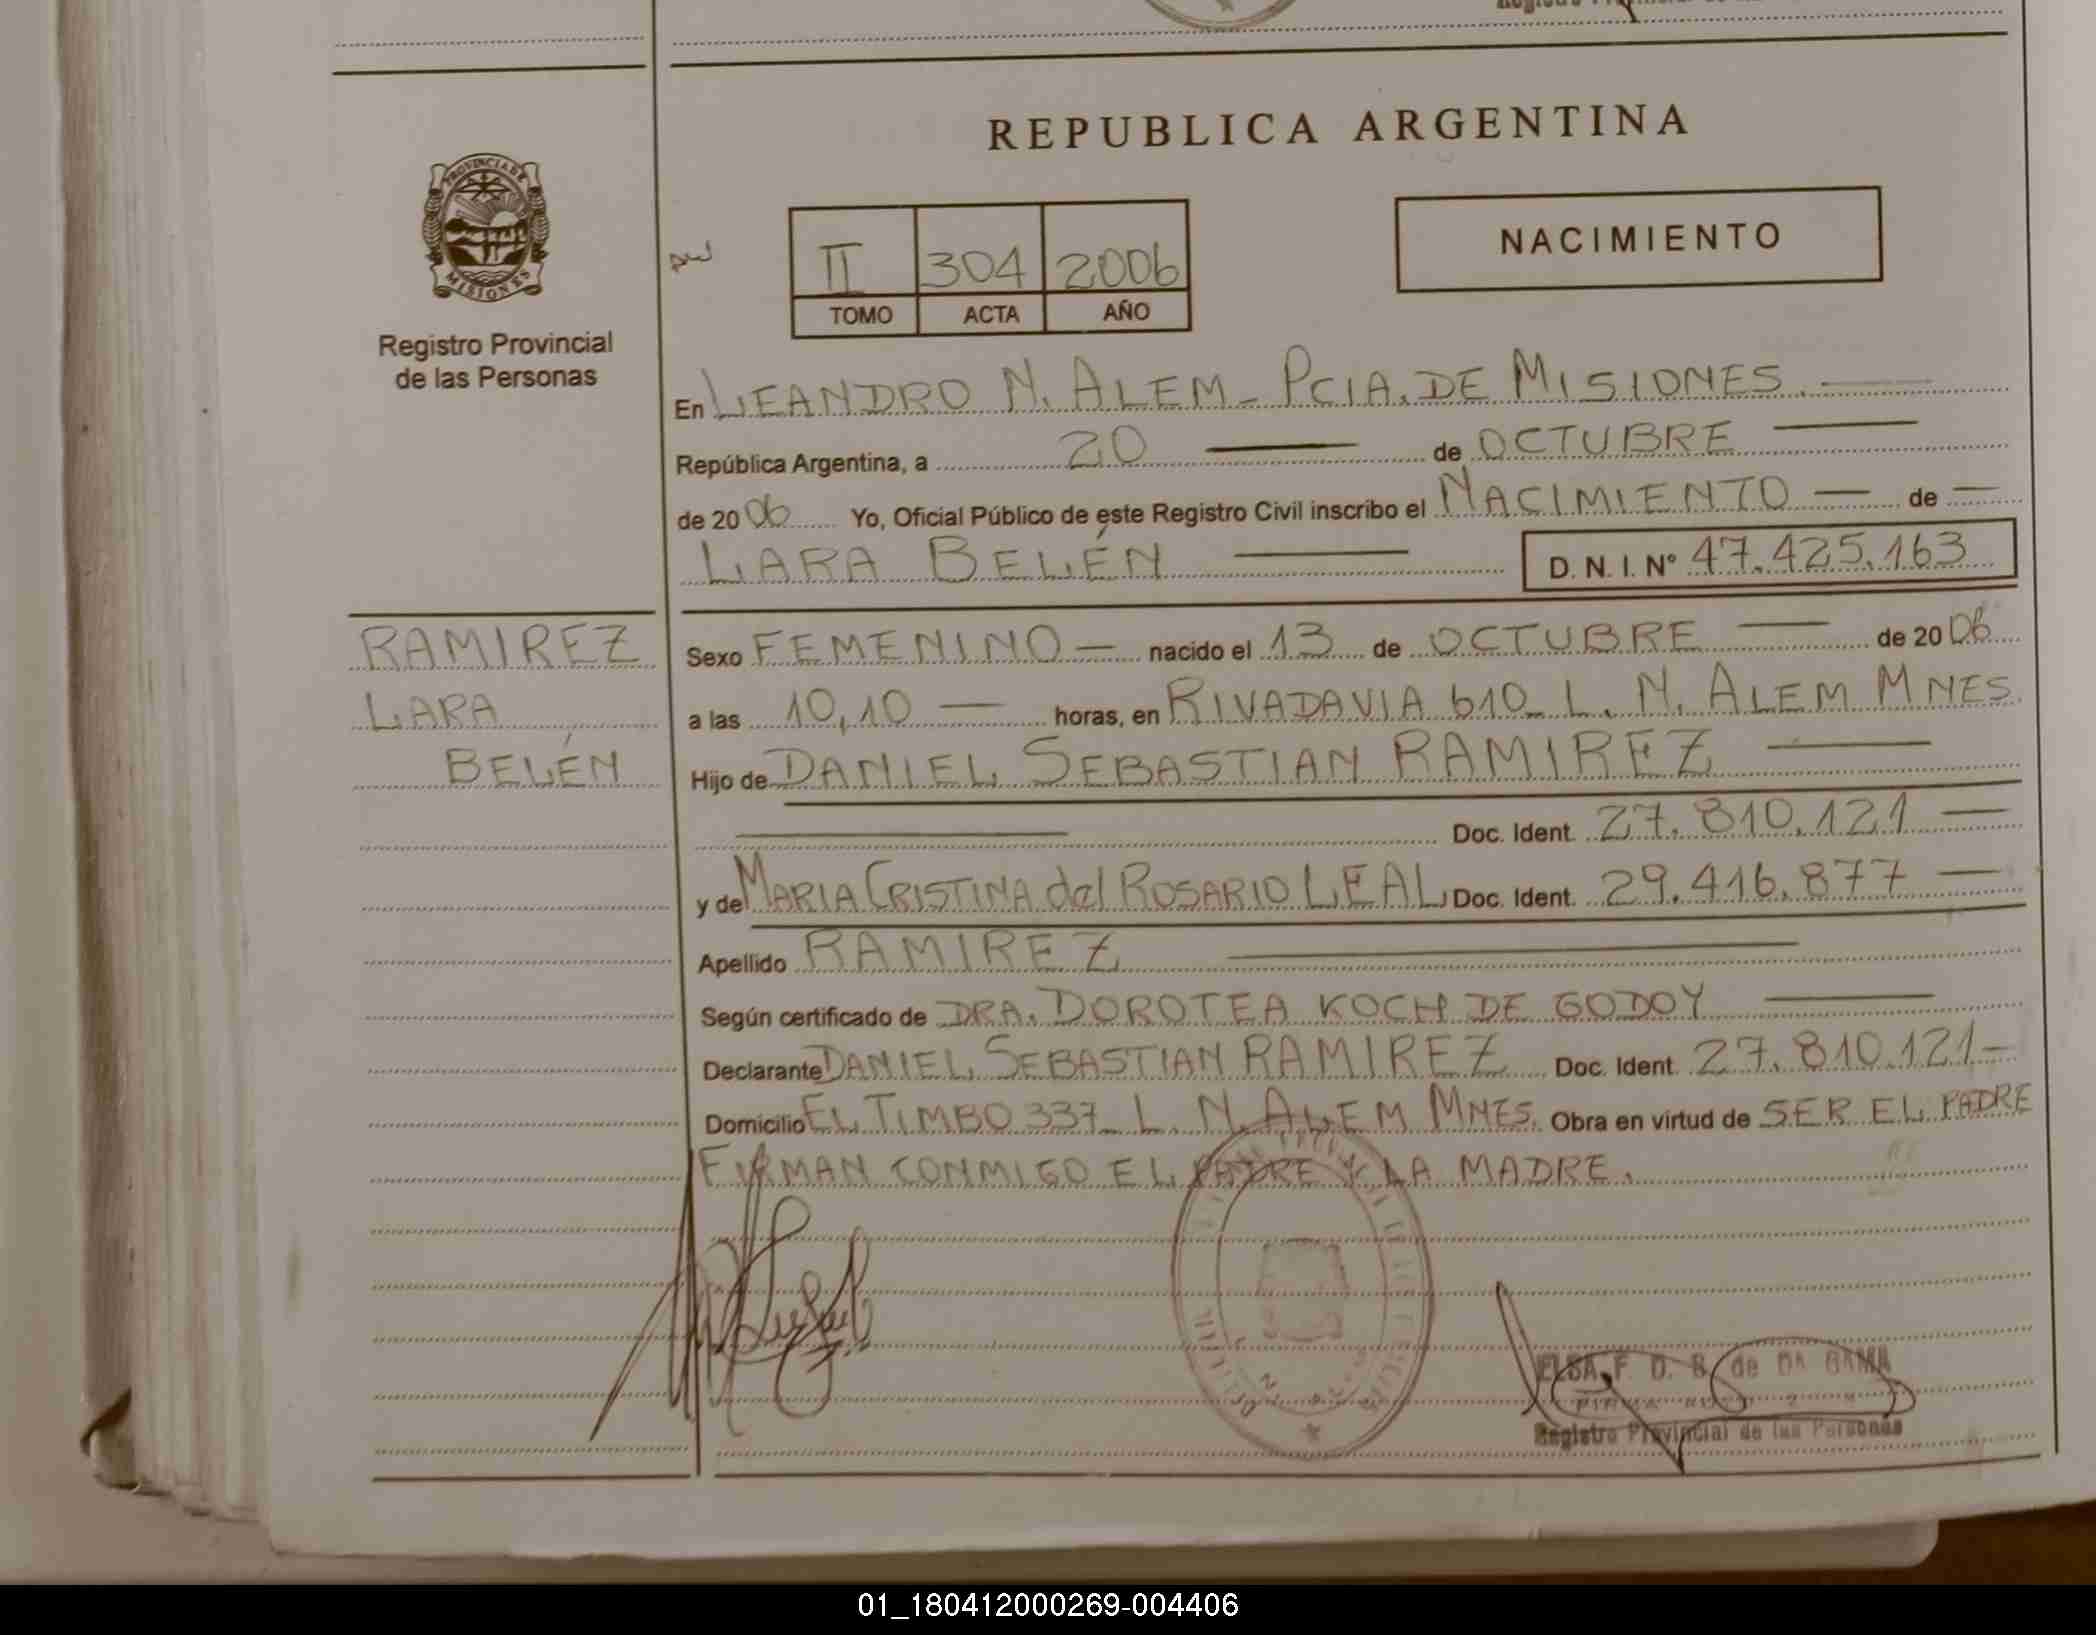 REPUBLICA ARGENTINA
PROVINCIA DE
MISIONES
Registro Provincial
de las Personas
II 304 2006
TOMO ACTA AÑO
NACIMIENTO
En LEANDRO N. ALEM - PCIA. DE MISIONES.
República Argentina, a 20 de OCTUBRE
de 2006 Yo, Oficial Público de este Registro Civil inscribo el NACIMIENTO de
LARA BELÉN D. N. I. Nº 47.425.163
RAMIREZ
LARA
BELÉN
Sexo FEMENINO nacido el 13 de OCTUBRE de 2006
a las 10,10 horas, en RIVADAVIA 610 L. N. ALEM MNES.
Hijo de DANIEL SEBASTIAN RAMIREZ
Doc. Ident. 27.810.121
y de MARIA CRISTINA del ROSARIO LEAL Doc. Ident. 29.416.877
Apellido RAMIREZ
Según certificado de DRA. DOROTEA KOCH DE GODOY
Declarante DANIEL SEBASTIAN RAMIREZ Doc. Ident. 27.810.121
Domicilio EL TIMBO 337 L. N. ALEM MNES. Obra en virtud de SER EL PADRE
FIRMAN CONMIGO EL PADRE Y LA MADRE.
ELSA F. D. B. de DA GAMA
Registro Provincial de las Personas
01_180412000269-004406